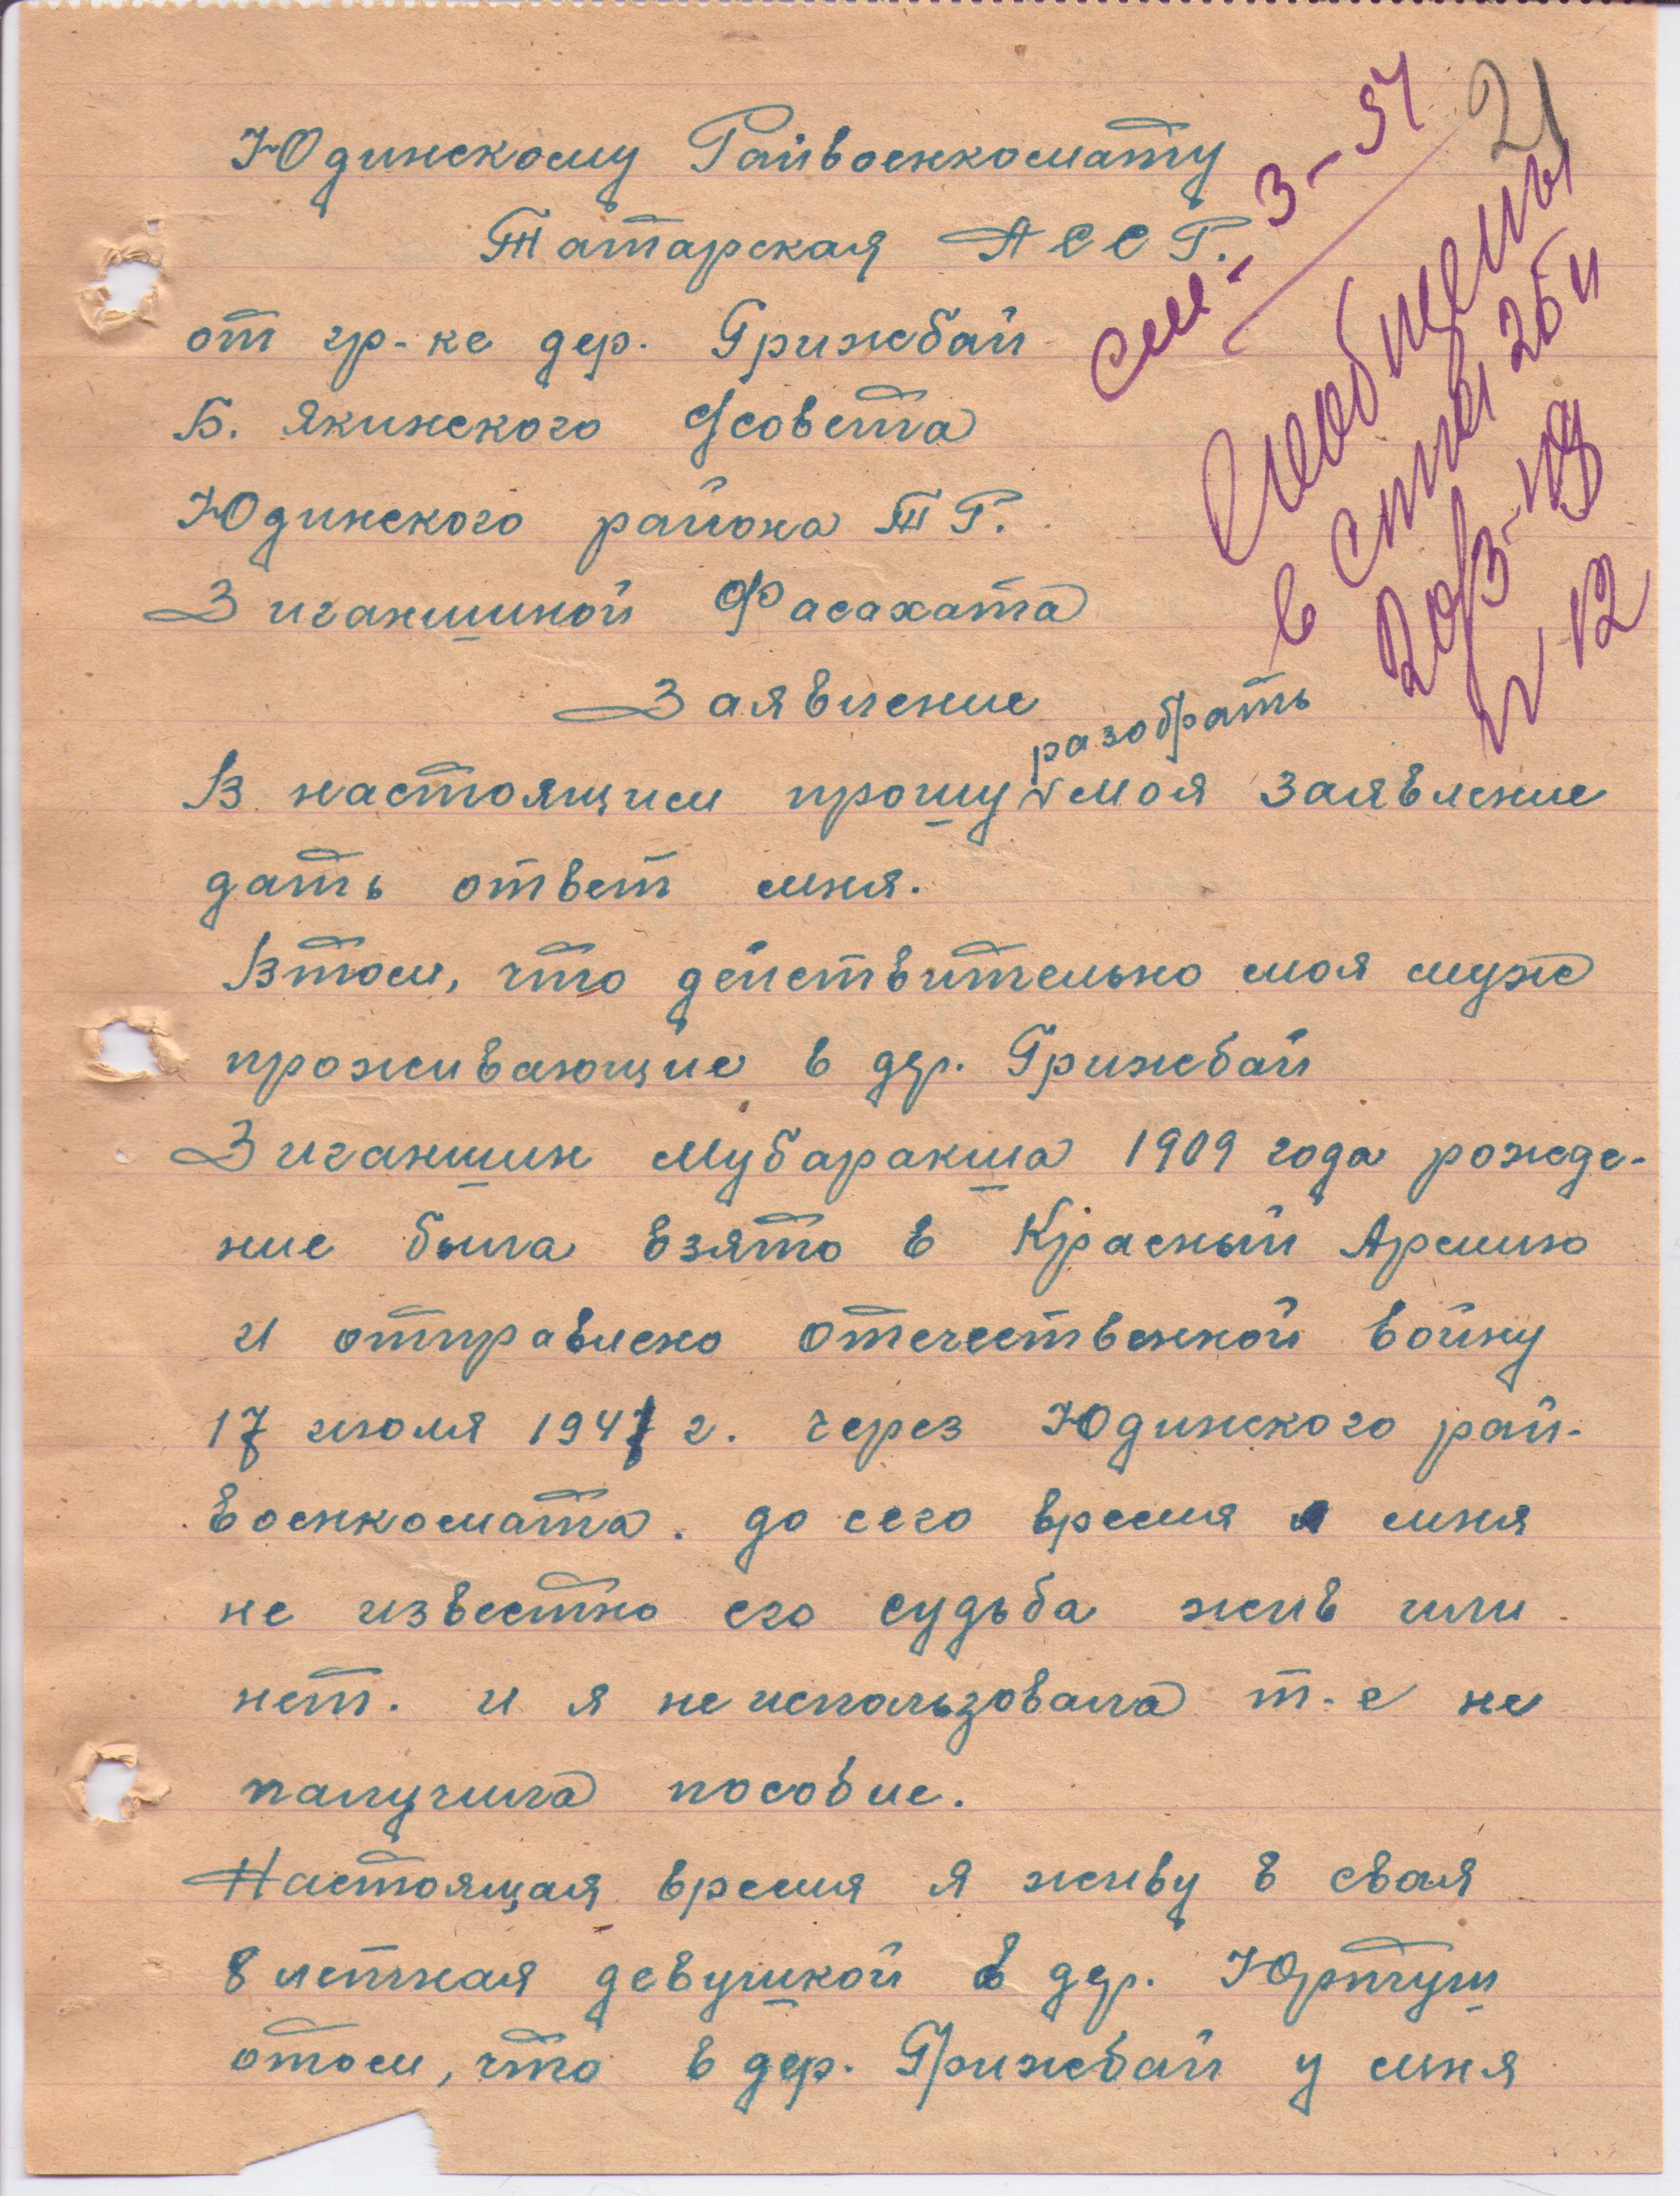 21
Юдинскому Райвоенкомату
Татарская АССР.
от гр-ке дер. Грижбай
Б. Якинского С/совета
Юдинского района ТР.
Зиганшиной Фасахата
Заявление
разобрать
В настоящим прошу v моя заявление
дать ответ мня.
Втом, что действительно моя муже
проживающие в дер. Грижбай
Зиганшин Мубаракша 1909 года рожде-
ние была взято в Красный Армию
и отправлено отечественной войну
17 июля 1941 г. через Юдинского рай-
военкомата. до сего время мня
не известно его судьба жив или
нет. и я не использовала т-е не
палучила пособие.
Настоящая время я живу в свая
8 летная девушкой в дер. Юртуш
отом, что в дер. Грижбай у мня
Сообщены
в